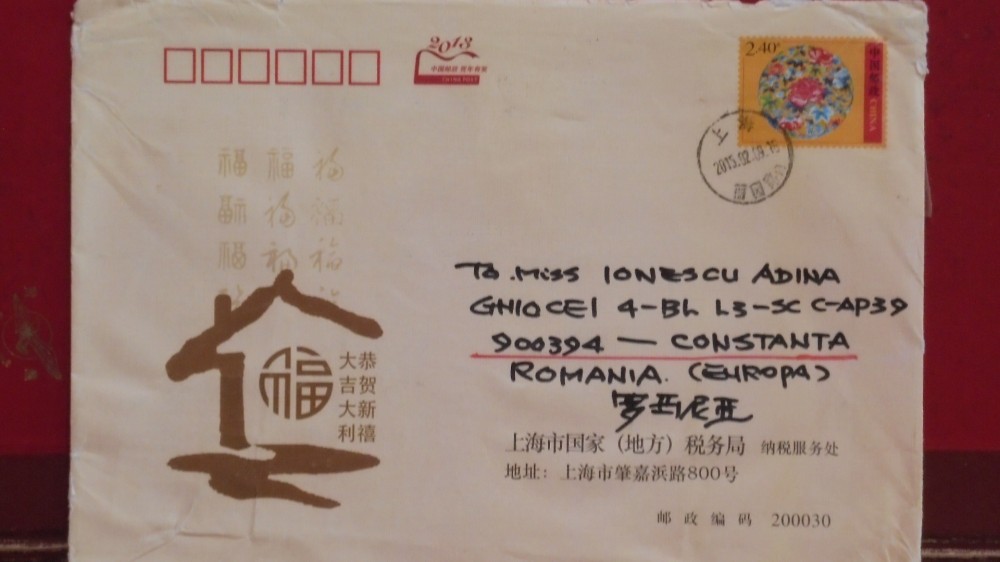 2013
中国邮政 贺年有奖
CHINA POST
2.40元
中国邮政
CHINA
上海
2015.02.09
福 福 福
福 福 福
福 福 福
福
恭贺新禧
大吉大利
To. Miss IONESCU ADINA
GHIOCEI 4-BL L3-SC C-AP39
900394 — CONSTANTA
ROMANIA. (EUROPA)
罗马尼亚
上海市国家（地方）税务局 纳税服务处
地址：上海市肇嘉浜路800号
邮政编码 200030